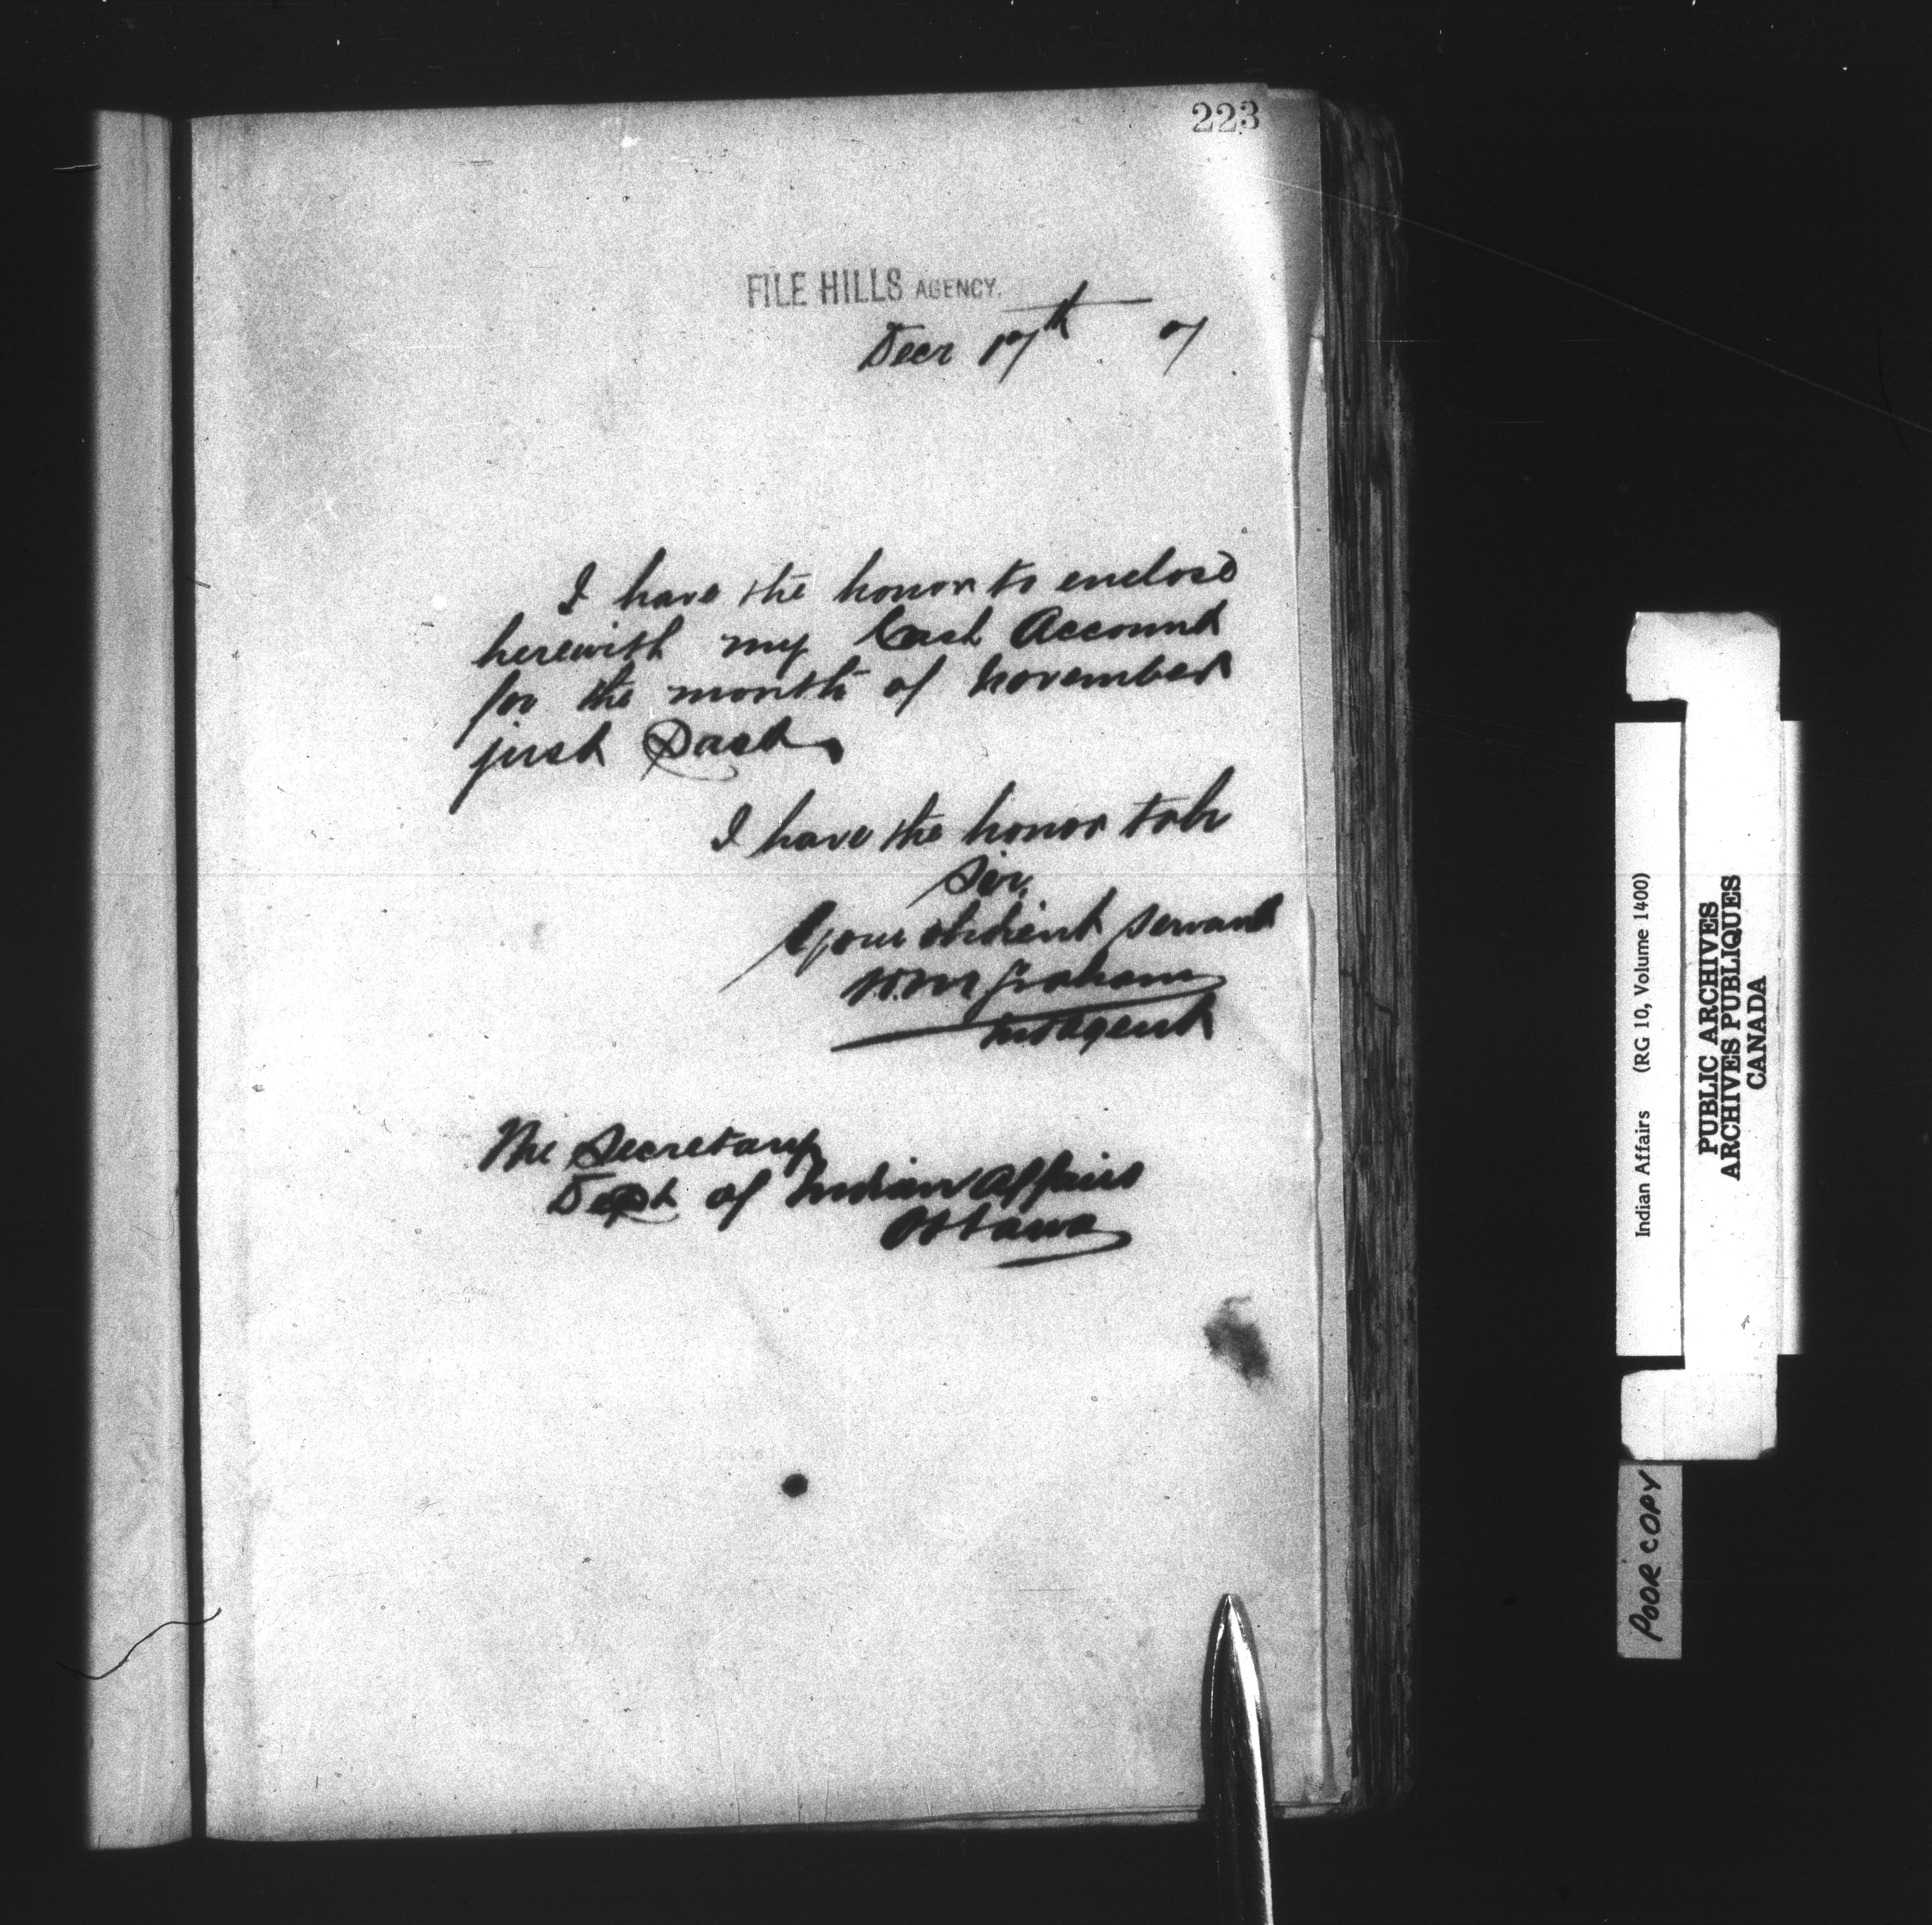 223
FILE HILLS AGENCY.
Decr 17th
I have the honor to enclose
herewith my Cash Account
for the month of November
just Past
I have the honor to be
Sir,
Your obedient servant
W.M. Graham
Ind Agent
The Secretary
Dept of Indian Affairs
Ottawa
Indian Affairs (RG 10, Volume 1400)
PUBLIC ARCHIVES
ARCHIVES PUBLIQUES
CANADA
POOR COPY